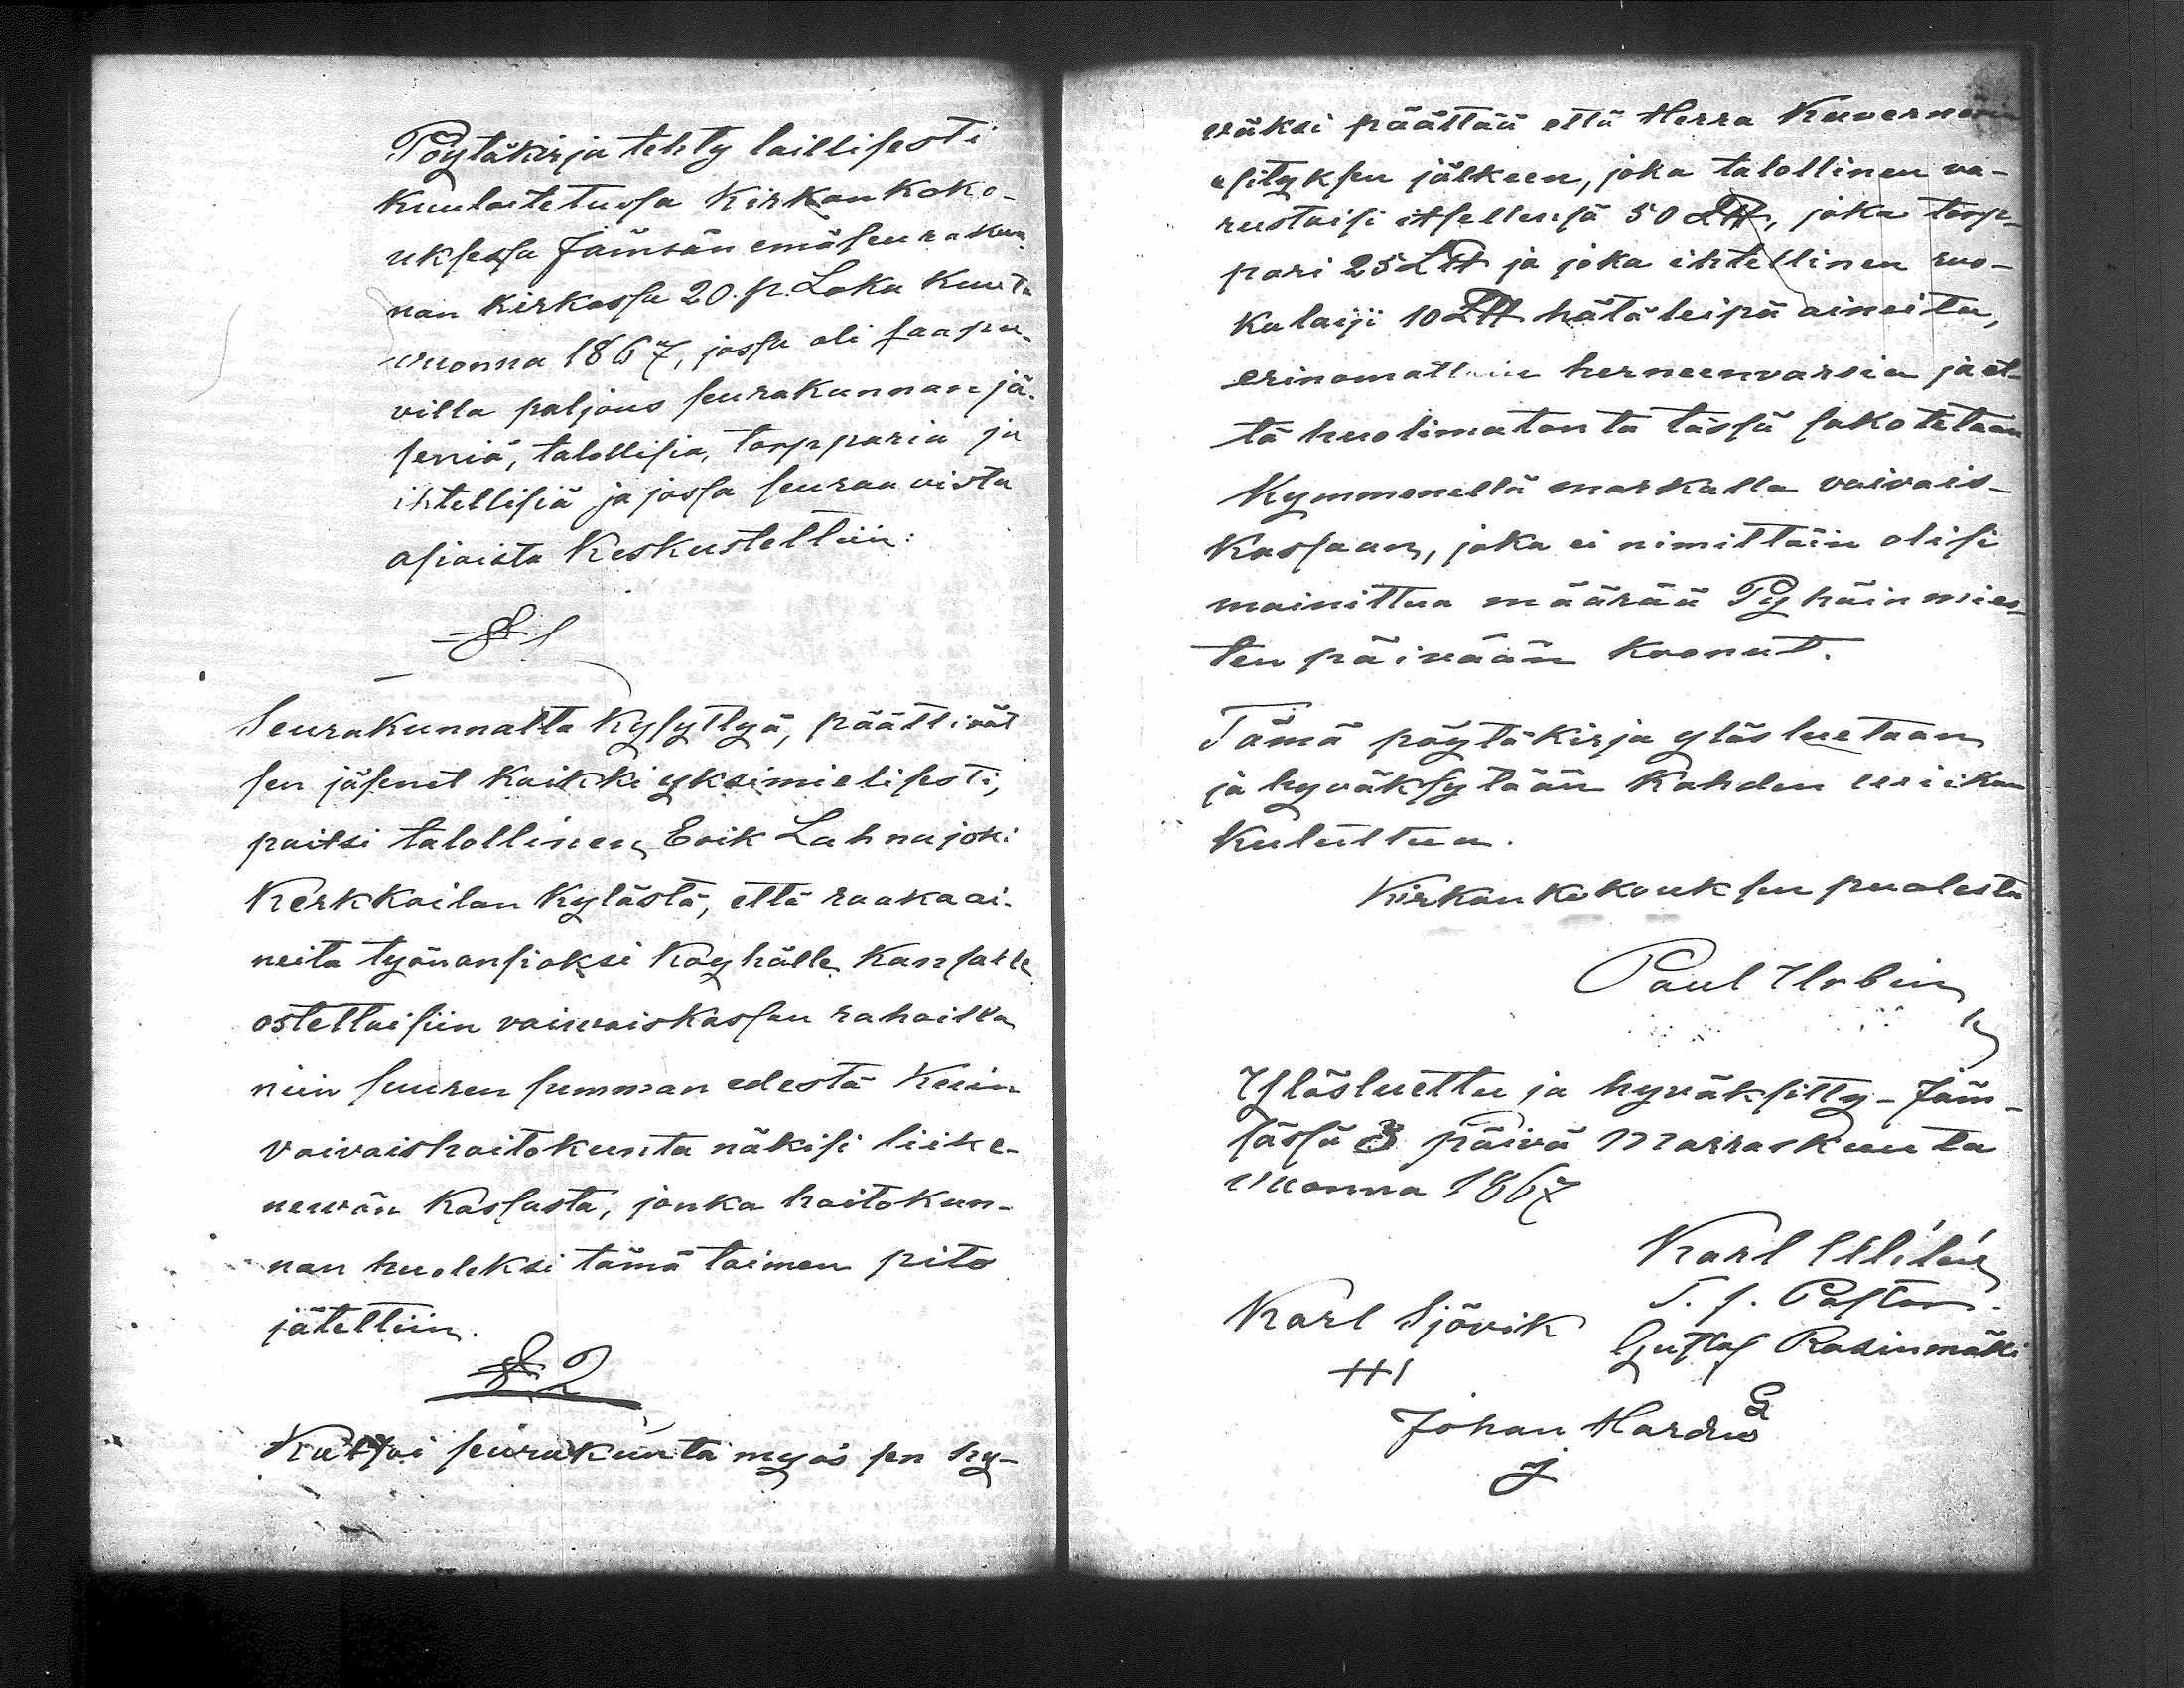 Pöytäkirja tehty laillisesti
kuulutetussa Kirkonkoko-
uksessa Jämsän emäseurakun-
nan kirkossa 20. p. Loka kuuta
vuonna 1867, jossa oli saapu-
villa paljous seurakunnan jä-
seniä, talollisia, torpparia ja
ihtellisiä ja jossa seuraavista
asioista Keskusteltiin:
§ 1
Seurakunnalta kysyttyä, päättivät
sen jäsenet kaikki yksimielisesti,
paitsi talollinen Erik Lahnajoki
Kerkkoilan kylästä, että raaka ai-
neita työnansioksi köyhälle kansalle
ostettaisiin vaivaiskassan rahoilla
niin suuren summan edestä kuin
vaivaishoitokunta näkisi liike-
nevän kassasta, jonka hoitokun-
nan huoleksi tämä toimen pito
jätettiin.
§ 2
Katsoi seurakunta myös sen hy-
väksi päättää että Herra Kuvernörin
esityksen jälkeen, joka talollinen va-
rustaisi itsellensä 50 L℔, joka torp-
pari 25 L℔ ja joka ihtellinen ruo-
kalaiji 10 L℔ hätäleipä aineita,
erinomattain herneenvarsia ja et-
tä huolimatonta tässä sakotetaan
Kymmenellä markalla vaivais-
kassaan, joka ei nimittäin olisi
mainittua määrää Pyhäinmies-
ten päivään koonut.
Tämä pöytäkirja ylösluetaan
ja hyväksytään kahden viikon
kuluttua.
Kirkonkokouksen puolesta
Paul Urbin
Ylösluettu ja hyväksitty - Jäm-
sässä 3 päivä Marraskuuta
vuonna 1867
Karl
T. f. Pastor.
Karl Sjövik
Gustaf Rasinmäki
Johan Hardus